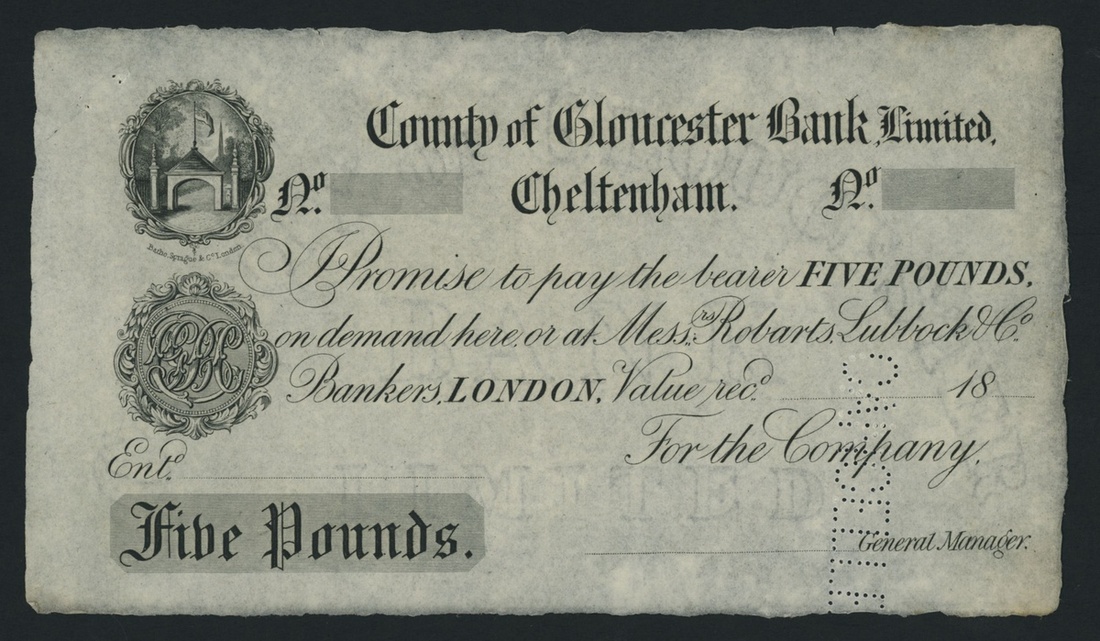 County of Gloucester Bank, Limited,
Nº. Cheltenham. Nº.
Bathe, Sprague & Cº. London.
I Promise to pay the bearer FIVE POUNDS,
on demand here, or at Messrs. Robarts, Lubbock & Cº.
Bankers, LONDON, Value recd. 18
For the Company,
Entd.
Five Pounds.
General Manager.
LIMITED